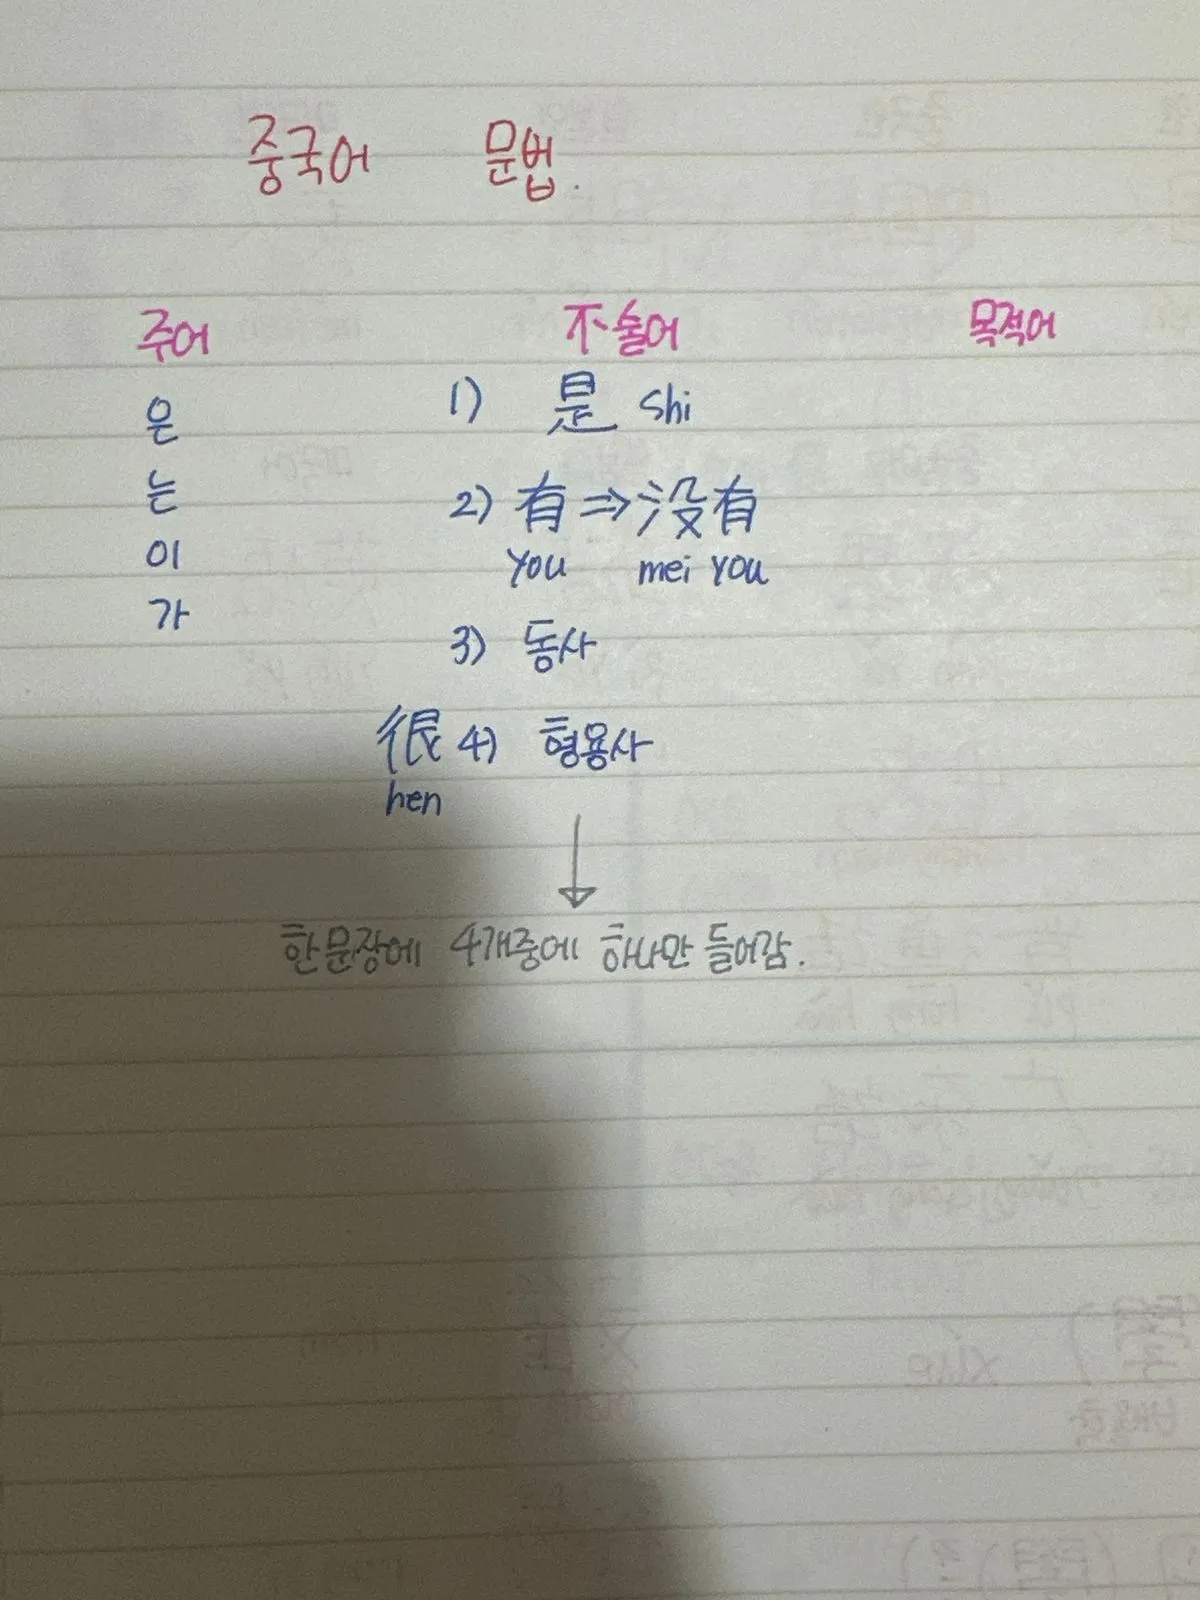 중국어 문법.
주어 不술어 목적어
은
는
이
가
1) 是 shi
2) 有 ⇒ 没有
you mei you
3) 동사
很 4) 형용사
hen
↓
한문장에 4개중에 하나만 들어감.